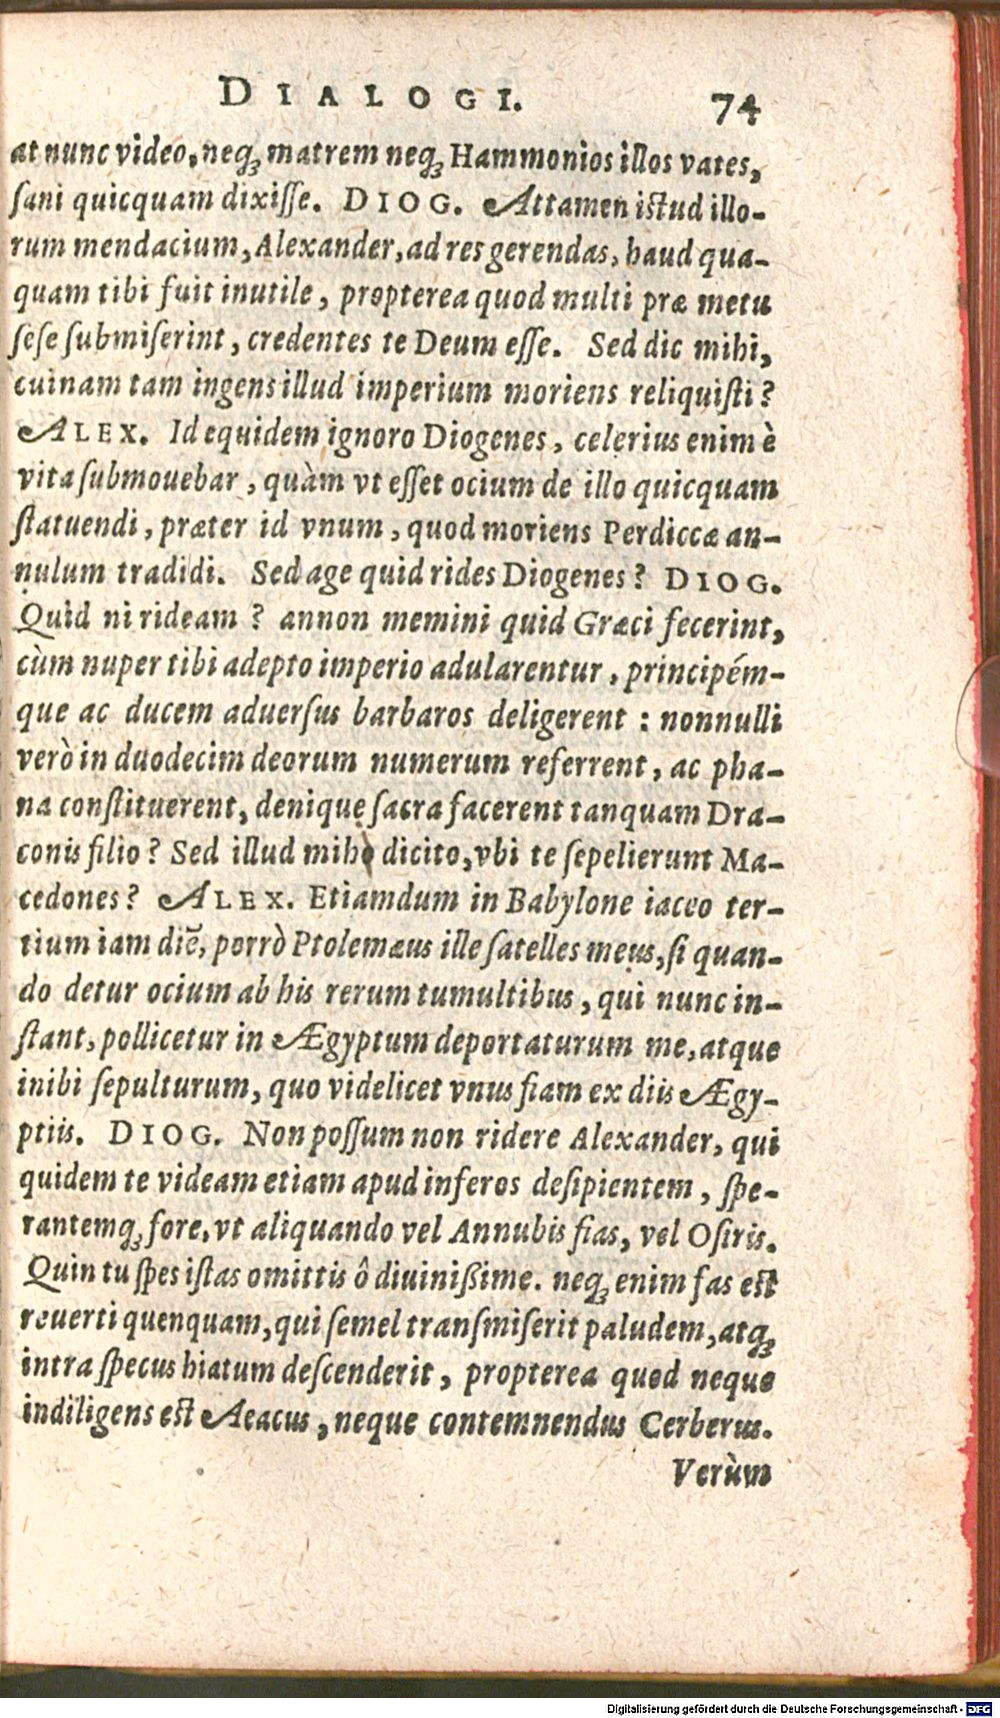 DIALOGI. 74
at nunc video, neq; matrem neq; Hammonios illos vates,
ſani quicquam dixiſſe. DIOG. Attamen iſtud illo-
rum mendacium, Alexander, ad res gerendas, haud qua-
quam tibi fuit inutile, propterea quod multi præ metu
ſeſe ſubmiſerint, credentes te Deum eſſe. Sed dic mihi,
cuinam tam ingens illud imperium moriens reliquiſti?
ALEX. Id equidem ignoro Diogenes, celerius enim è
vita ſubmouebar, quàm vt eſſet ocium de illo quicquam
ſtatuendi, præter id vnum, quod moriens Perdiccæ an-
nulum tradidi. Sed age quid rides Diogenes? DIOG.
Quid ni rideam? annon memini quid Græci fecerint,
cùm nuper tibi adepto imperio adularentur, principém-
que ac ducem aduerſus barbaros deligerent: nonnulli
verò in duodecim deorum numerum referrent, ac pha-
na conſtituerent, denique ſacra facerent tanquam Dra-
conis filio? Sed illud mihi dicito, vbi te ſepelierunt Ma-
cedones? ALEX. Etiamdum in Babylone iaceo ter-
tium iam diē, porrò Ptolemæus ille ſatelles meus, ſi quan-
do detur ocium ab his rerum tumultibus, qui nunc in-
ſtant, pollicetur in Ægyptum deportaturum me, atque
inibi ſepulturum, quo videlicet vnus fiam ex diis Ægy-
ptiis. DIOG. Non poſſum non ridere Alexander, qui
quidem te videam etiam apud inferos deſipientem, ſpe-
rantemq; fore, vt aliquando vel Annubis fias, vel Oſiris.
Quin tu ſpes iſtas omittis ô diuinißime. neq; enim fas eſt
reuerti quenquam, qui ſemel tranſmiſerit paludem, atq;
intra ſpecus hiatum deſcenderit, propterea quod neque
indiligens eſt Aeacus, neque contemnendus Cerberus.
Verùm
Digitalisierung gefördert durch die Deutsche Forschungsgemeinschaft - DFG